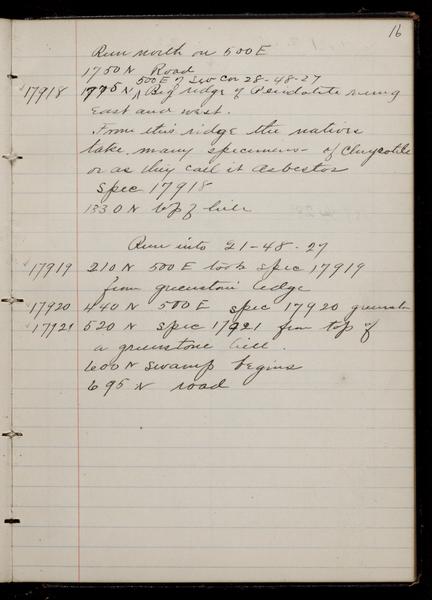 16
Run north on 500 E
1750 N Road
500 E of SW Cor 28-48-27
17918 1775 N Big ridge of Peridotite runing
East and west.
From this ridge the natives
take many specimens of Chrysotile
or as they call it Asbestos
Spec 17918
1330 N top of hill
Run into 21-48-27
17919 210 N 500 E took spec 17919
from greenstone ledge
17920 440 N 500 E spec 17920
17921 520 N spec 17921 from top of
a greenstone hill.
600 N Swamp begins
695 N road